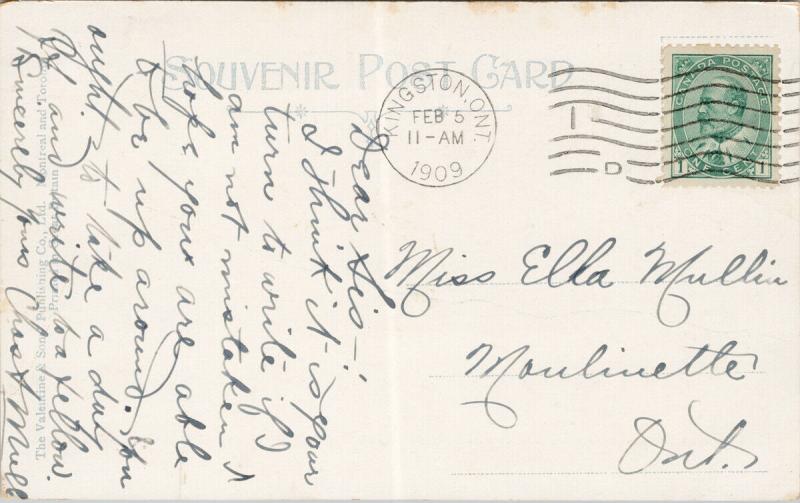 SOUVENIR POST CARD
KINGSTON, ONT.
FEB 5
11-AM
1909
1
D
CANADA POSTAGE
ONE CENT
1 1
Miss Ella Mullin
Moulinette
Ont.
Dear Sis—!
I think it is your
turn to write if I
am not mistaken I
hope you are able
to be up around. You
ought to take a
and write to a fellow.
Sincerely yours Chas
The Valentine & Sons' Publishing Co., Ltd. Montreal and Toronto